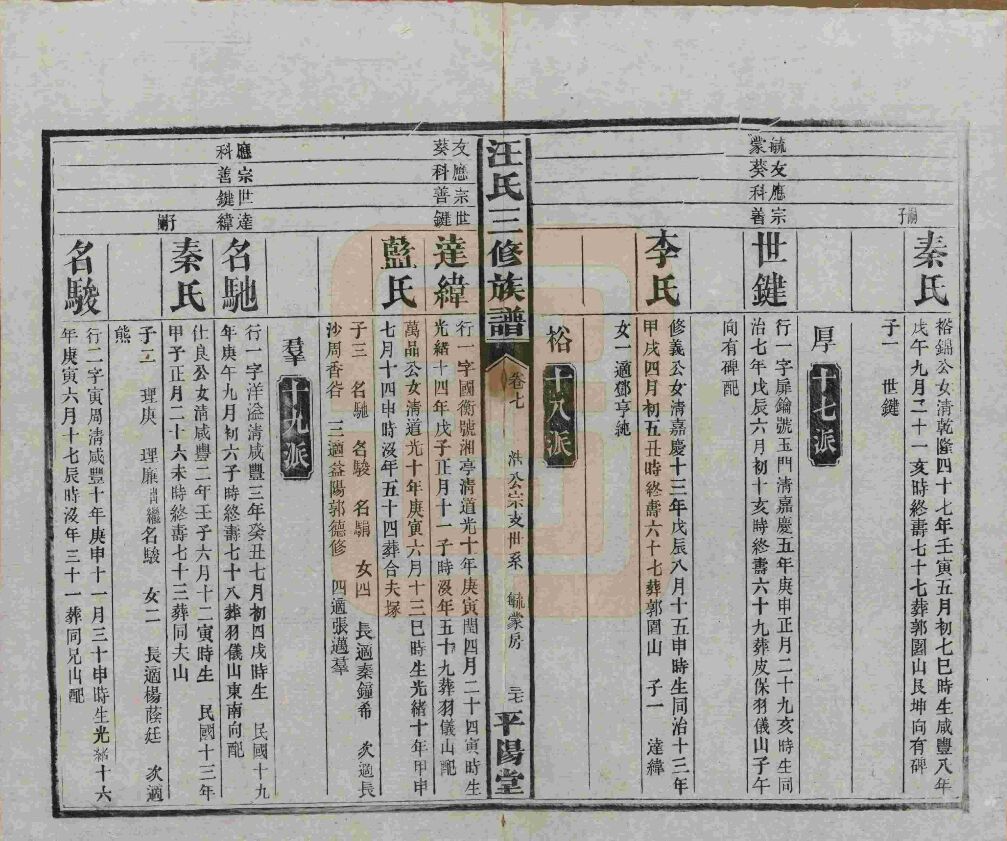 嗣子
秦氏
裕錦公女清乾隆四十七年壬寅五月初七巳時生咸豐八年
戊午九月二十一亥時終壽七十七葬郭園山艮坤向有碑
子一 世鍵
厚 十七派
毓友應宗
蒙葵科善
世鍵
行一字扉鑰號玉門清嘉慶五年庚申正月二十九亥時生同
治七年戊辰六月初十亥時終壽六十九葬皮保羽儀山子午
向有碑配
李氏
修義公女清嘉慶十三年戊辰八月十五申時生同治十三年
甲戌四月初五丑時終壽六十七葬郭園山 子一 達緯
女一適鄧亨純
裕 十八派
汪氏三修族譜 卷七 洪公宗支世系 毓蒙房 三七 平陽堂
友應宗世
葵科善鍵
達緯
行一字國衡號湘亭清道光十年庚寅閏四月二十四寅時生
光緒十四年戊子正月十一子時沒年五十九葬羽儀山配
藍氏
萬品公女清道光十年庚寅六月十三巳時生光緒十年甲申
七月十四申時沒年五十四葬合夫塚
子三 名馳 名駿 名騆 女四 長適秦鐘希 次適長
沙周香谷 三適益陽郭德修 四適張邁羣
羣 十九派
應宗世達
科善鍵緯
名馳
行一字洋溢清咸豐三年癸丑七月初四戌時生 民國十九
年庚午九月初六子時終壽七十八葬羽儀山東南向配
嗣子
秦氏
仕良公女清咸豐二年壬子六月十二寅時生 民國十三年
甲子正月二十六未時終壽七十三葬同夫山
子二 理庚 理廉 繼名駿 女二 長適楊蔭廷 次適
熊
名駿
行二字寅周清咸豐十年庚申十一月三十申時生光緒十六
年庚寅六月十七辰時沒年三十一葬同兄山配